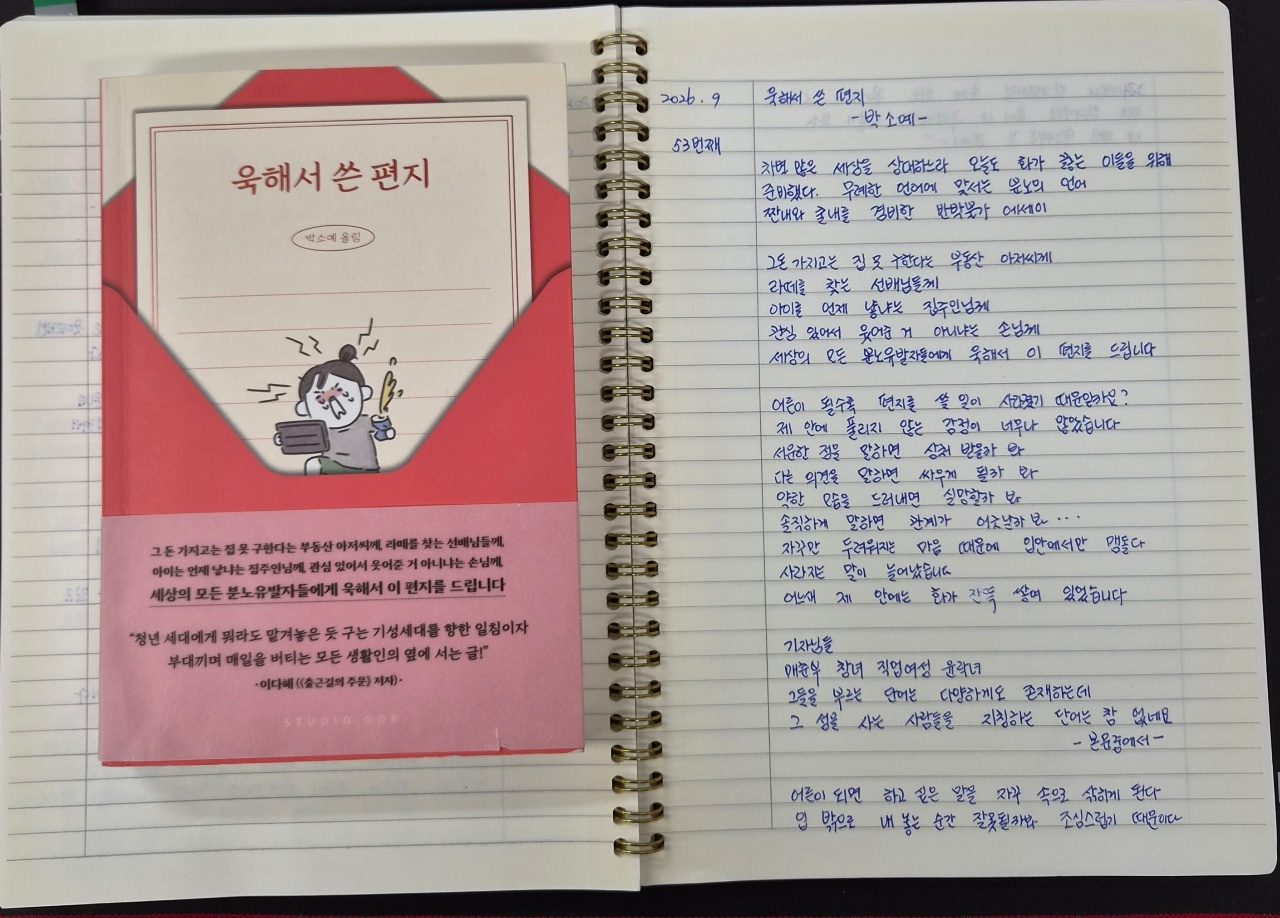 욱해서 쓴 편지
박소예 올림
그 돈 가지고는 집 못 구한다는 부동산 아저씨께, 라떼를 찾는 선배님들께,
아이는 언제 낳냐는 집주인님께, 관심 있어서 웃어준 거 아니냐는 손님께,
세상의 모든 분노유발자들에게 욱해서 이 편지를 드립니다
“청년 세대에게 뭐라도 맡겨놓은 듯 구는 기성세대를 향한 일침이자
부대끼며 매일을 버티는 모든 생활인의 옆에 서는 글!”
·이다혜(《출근길의 주문》 저자)·
STUDIO:ODR
2026. 9
욱해서 쓴 편지
-박소예-
53번째
치면 않은 세상을 상대하느라 오늘도 화가 끓는 이들을 위해
준비했다. 무례한 언어에 맞서는 분노의 언어
짠내와 쿨내를 겸비한 반박불가 에세이
그돈 가지고는 집 못 구한다는 부동산 아저씨께
라떼를 찾는 선배님들께
아이를 언제 낳냐는 집주인님께
관심 있어서 웃어준 거 아니냐는 손님께
세상의 모든 분노유발자들에게 욱해서 이 편지를 드립니다
어른이 될수록 편지를 쓸 일이 사라졌기 때문일까요?
제 안에 풀리지 않는 감정이 너무나 많았습니다
서운한 점을 말하면 상처 받을까 봐
다른 의견을 말하면 싸우게 될까 봐
약한 모습을 드러내면 실망할까 봐
솔직하게 말하면 관계가 어긋날까 봐...
자꾸만 두려워지는 마음 때문에 입안에서만 맴돌다
사라지는 말이 늘어났습니다
어느새 제 안에는 화가 잔뜩 쌓여 있었습니다
기자님들
매춘부 창녀 직업여성 윤락녀
그들을 부르는 단어는 다양하게도 존재하는데
그 성을 사는 사람들을 지칭하는 단어는 참 없네요
-본문중에서-
어른이 되면 하고 싶은 말을 자꾸 속으로 삭히게 된다
입 밖으로 내 놓는 순간 잘못될까봐 조심스럽기 때문이다